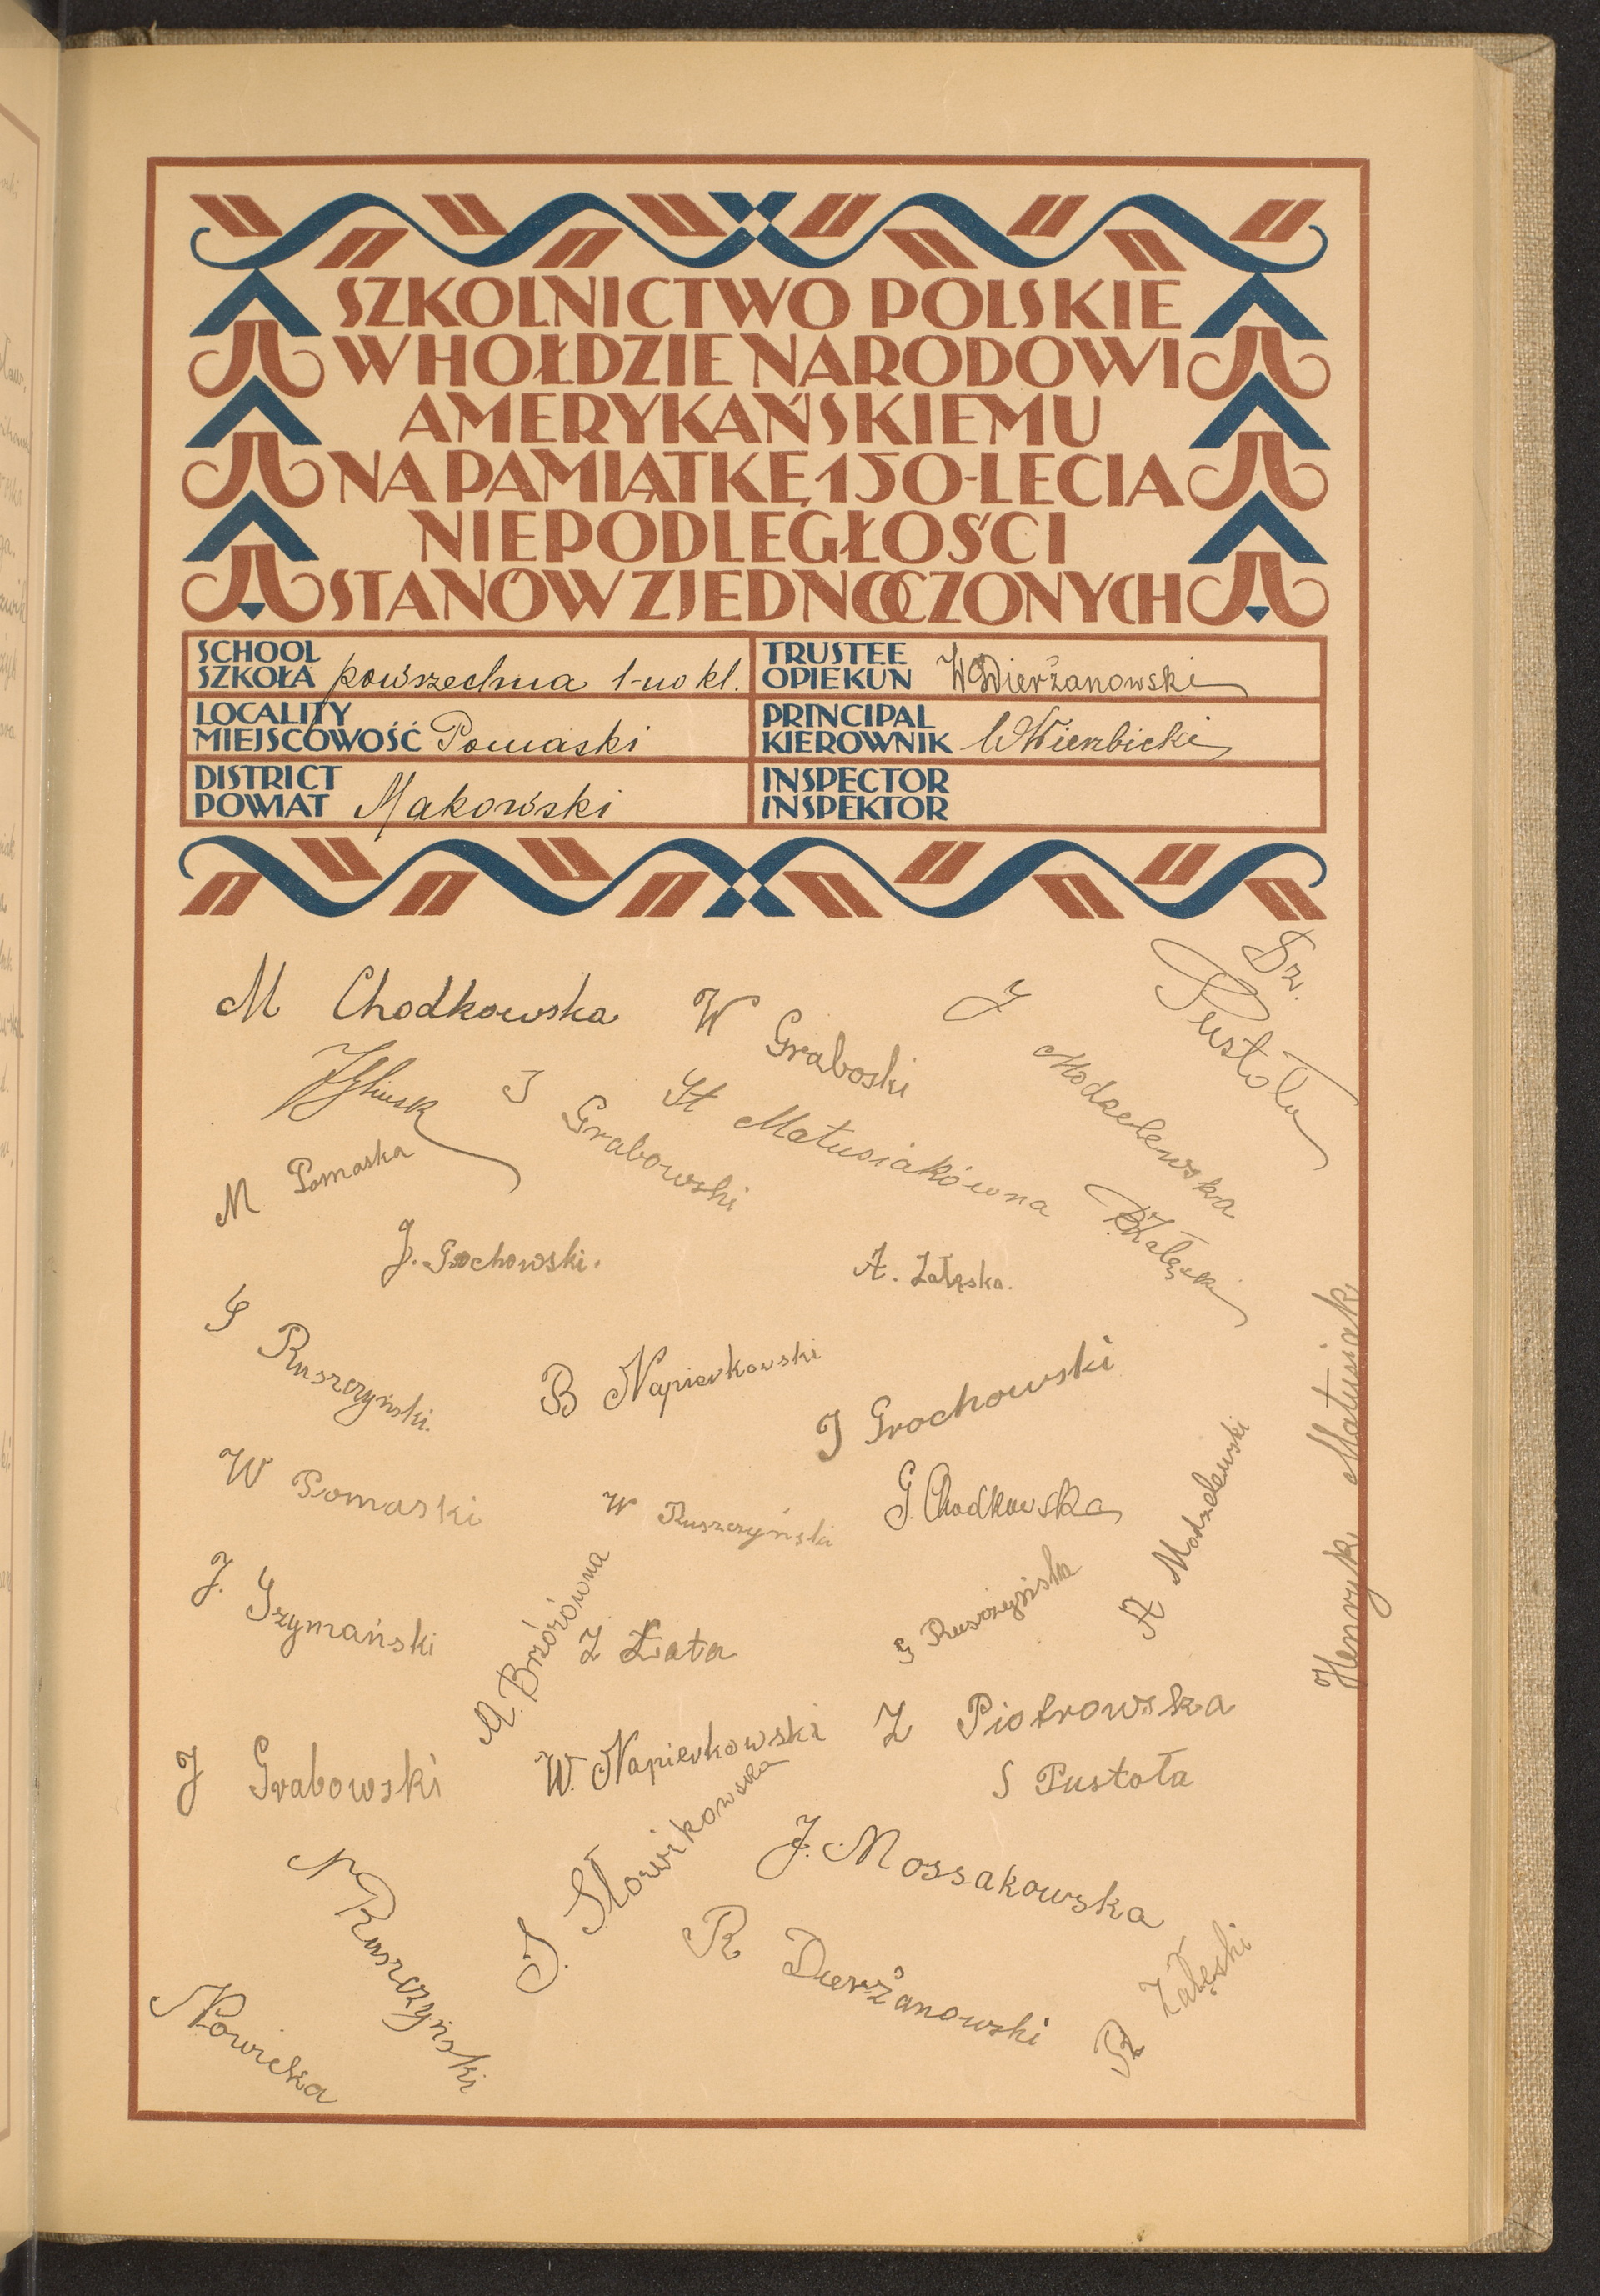 SZKOLNICTWO POLSKIE
W HOŁDZIE NARODOWI
AMERYKAŃSKIEMU
NA PAMIĄTKĘ 150-LECIA
NIEPODLEGŁOŚCI
STANÓW ZJEDNOCZONYCH
SCHOOL
SZKOŁA powszechna 1-no kl.
TRUSTEE
OPIEKUN W Dierżanowski
LOCALITY
MIEJSCOWOŚĆ Pomaski
PRINCIPAL
KIEROWNIK W Wierzbicki
DISTRICT
POWIAT Makowski
INSPECTOR
INSPEKTOR
M Chodkowska
W Graboski
J Modzelewska
Sz. Pustoła
J Grabowski
St Matusiakówna
M Pomaska
J. Grochowski.
A. Załęska.
R. Załęski
S Ruszczyński.
B Napierkowski
J Grochowski
W Pomaski
W Ruszczyński
G. Chodkowska
A Modzelewski
Henryk Matusiak
J. Szymański
M. Brzózówna
Z Łata
G Ruszczyńska
J Grabowski
W. Napierkowski
Z Piotrowska
S Pustoła
N Ruszczyński
S. Słowikowska
J. Mossakowska
R Dierżanowski
R Załęski
Nowicka